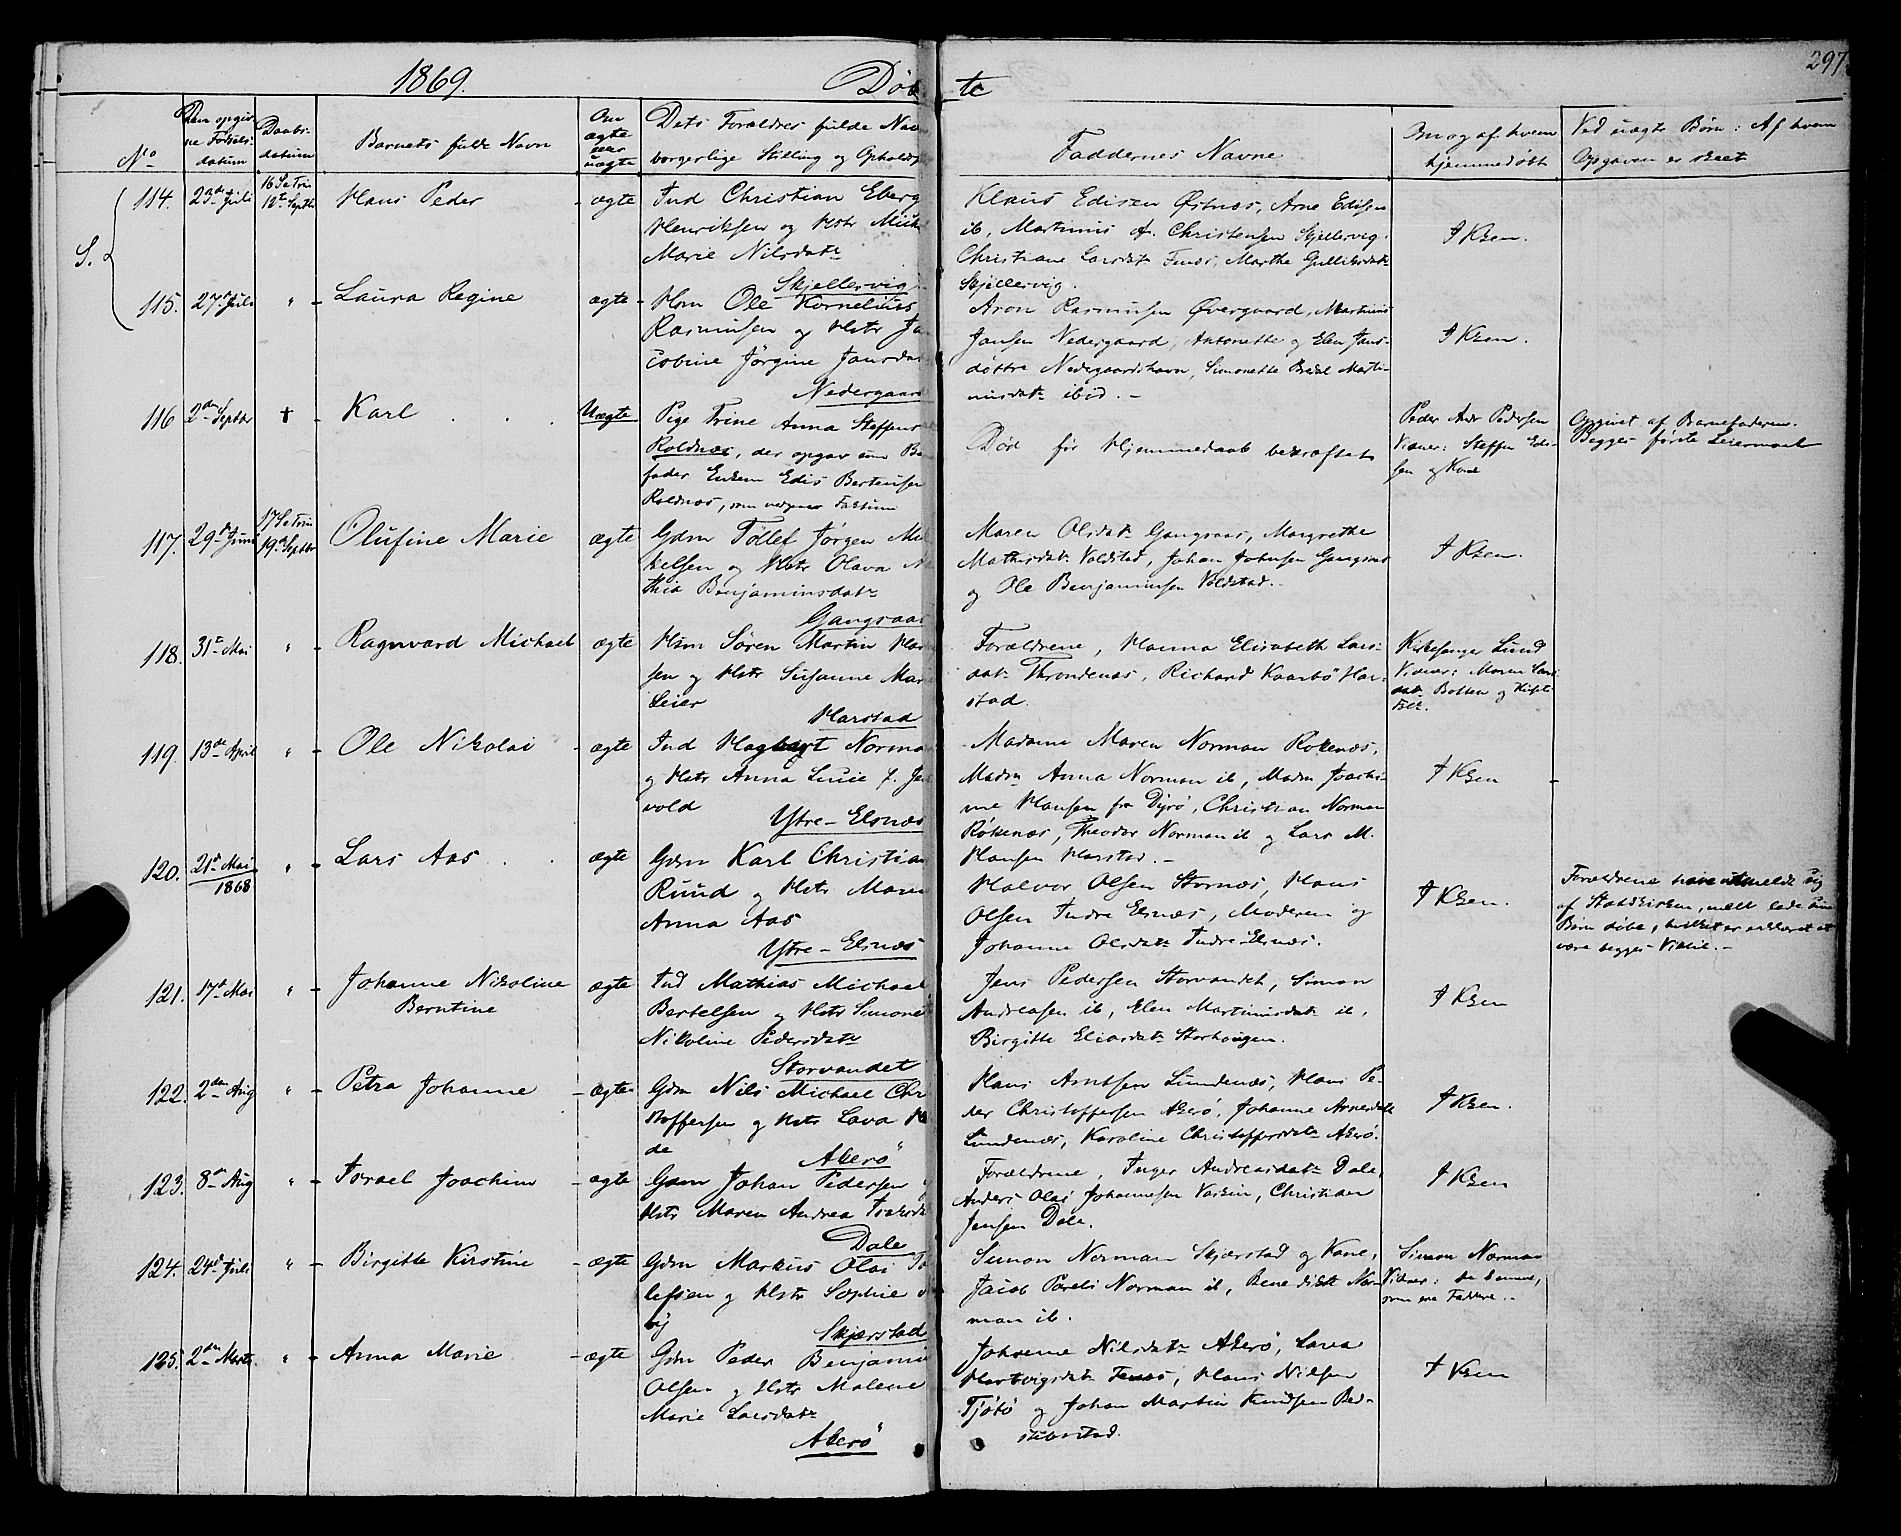 1869.
Døb te
297
No
Den opgiv
ne Fødsels
datum
Daabs-
datum
Barnets fulde Navn
Om
ægte
eller
uægte
Dets Forældres fulde Navn
borgerlige Stilling og Opholds
Faddernes Navne
Om og af hvem
hjemmedøbt
Ved uægte Børn: Af hvem
Opgaven er skeet
S.
114. 23de Juli 16 S e Trin 12te Septbr Hans Peder - ægte
Ind Christian Eberg
Henriksen og Hstr
Marie Nilsdatr
Skjellervig
Klaus Edisen Østnæs, Arne Edisen
ib, Martinus A. Christensen Skjellervig.
Christiane Larsdatr Fenes, Marthe Gulliksdatr
Skjellervig.
I Kken.
115. 27de Juli " - Laura Regine ægte -
Hsm Ole Kornelius
Rasmussen og Hstr Ja
cobine Jørgine Jansdat
Nedergaard
Aron Rasmussen Øvergaard, Martinus
Jansen Nedergaard, Antonette og Elen Jans-
døttre Nedergaardshavn, Simonette Martin-
usdatr ibid. -
I Kken.
116 2den Septbr † - Karl Uægte
Pige Trine Anna Steffens
Roldnæs, der opgav som Ba
fader Enkem Edis Berteusen
Roldnæs, som Factum
Død før Hjemmedaab bekræftet
Peder Andr Pedersen
Vidner: Steffen Edi-
sen og Kone
Opgivet af Barnefaderen.
Begges første Leiermaal
117. 29de Juni 17 S e Trin 19de Septbr Olufine Marie ægte
Gdm Tollef Jørgen Mik
kelsen og Hstr Olava Ma
thia Benjaminsdatr
Gangsaas
Maren Olsdatr Gangsaas, Margrethe
Mathisdatr Voldstad, Johan Johnsen Gangsaas
og Ole Benjaminsen Voldstad. -
I Kken.
118. 31te Mai " - Ragnvard Michael ægte
Hsm Søren Martin Han
sen og Hstr Susanne Mar
Leier
Harstad
Forældrene, Hanna Elisabeth Lars-
datr Throndenæs, Richard Kaarbø Har-
stad.
Kirkesanger Lund
Vidner: Maren Lars
datr Botten og
119. 13de April " - Ole Nikolai - ægte
Ind Hagbart Norman
og Hstr Anna Lucie f. Jen
vold
Ytre-Elsnæs
Madame Maren Norman Rokenæs,
Madm Anna Norman ib, Madm Joachi-
me Hansen fra Dyrø, Christian Norman
Røkenæs, Theodor Norman ib og Lars M.
Hansen Harstad. -
I Kken
120. 21de Mai 1868 " - Lars Aas ægte
Gdm Karl Christian
Ruud og Hstr Maren
Anna Aas
Ytre-Elsnæs
Halvor Olsen Stornæs, Hans
Olsen Indre Elsnæs, Moderen og
Johanne Olsdatr Indre-Elsnæs.
I Kken.
Forældrene have udmeldt sig
af Statskirken, men lade sine
Børn døbe, hvilket er erklæret at
være begges Villie. -
121. 17de Mai " - Johanne Nikoline
Berntine
ægte
Ind Mathias Michael
Bertelsen og Hstr Simone
Nikoline Pedersdatr
Storvandet
Jens Pedersen Storvandet, Simon
Andreasen ib, Elen Martinusdatr ib,
Birgitte Eliasdatr Storhaugen.
I Kken
122. 2den Aug " - Petra Johanne - ægte
Gdm Nils Michael Chri
stoffersen og Hstr Lava
de
Akerø
Hans Arntsen Lundenæs, Hans Pe-
der Christoffersen Akerø, Johanne Arnesdatr
Lundenæs, Karoline Christoffersdatr Akerø.
I Kken.
123. 8de Aug " - Israel Joachim - ægte
Gdm Johan Pedersen
Hstr Maren Andrea Isaksda
Dale
Forældrene, Inger Andreasdatr Dale,
Anders Olai Johannesen Varsin, Christian
Jensen Dale.
I Kken
124. 24de Juli " - Birgitte Kirstine - ægte
Gdm Markus Olai To
lefsen og Hstr Sophie
vij
Skjærstad
Simon Norman Skjærstad og Kone,
Jacob Parelis Norman ib, Benedikte Nor-
man ib.
Simon Norman
Vidner: De samme,
som ere Faddere. -
125. 2den Marts " - Anna Marie - ægte
Gdm Peder Benjamin
Olsen og Hstr Malene
Marie Larsdatr
Akerø
Johanne Nilsdatr Akerø, Lava
Hartvigsdatr Fenes, Hans Nilsen
Tjøtø og Johan Martin Knudsen Bed-
stevanstad.
I Kken